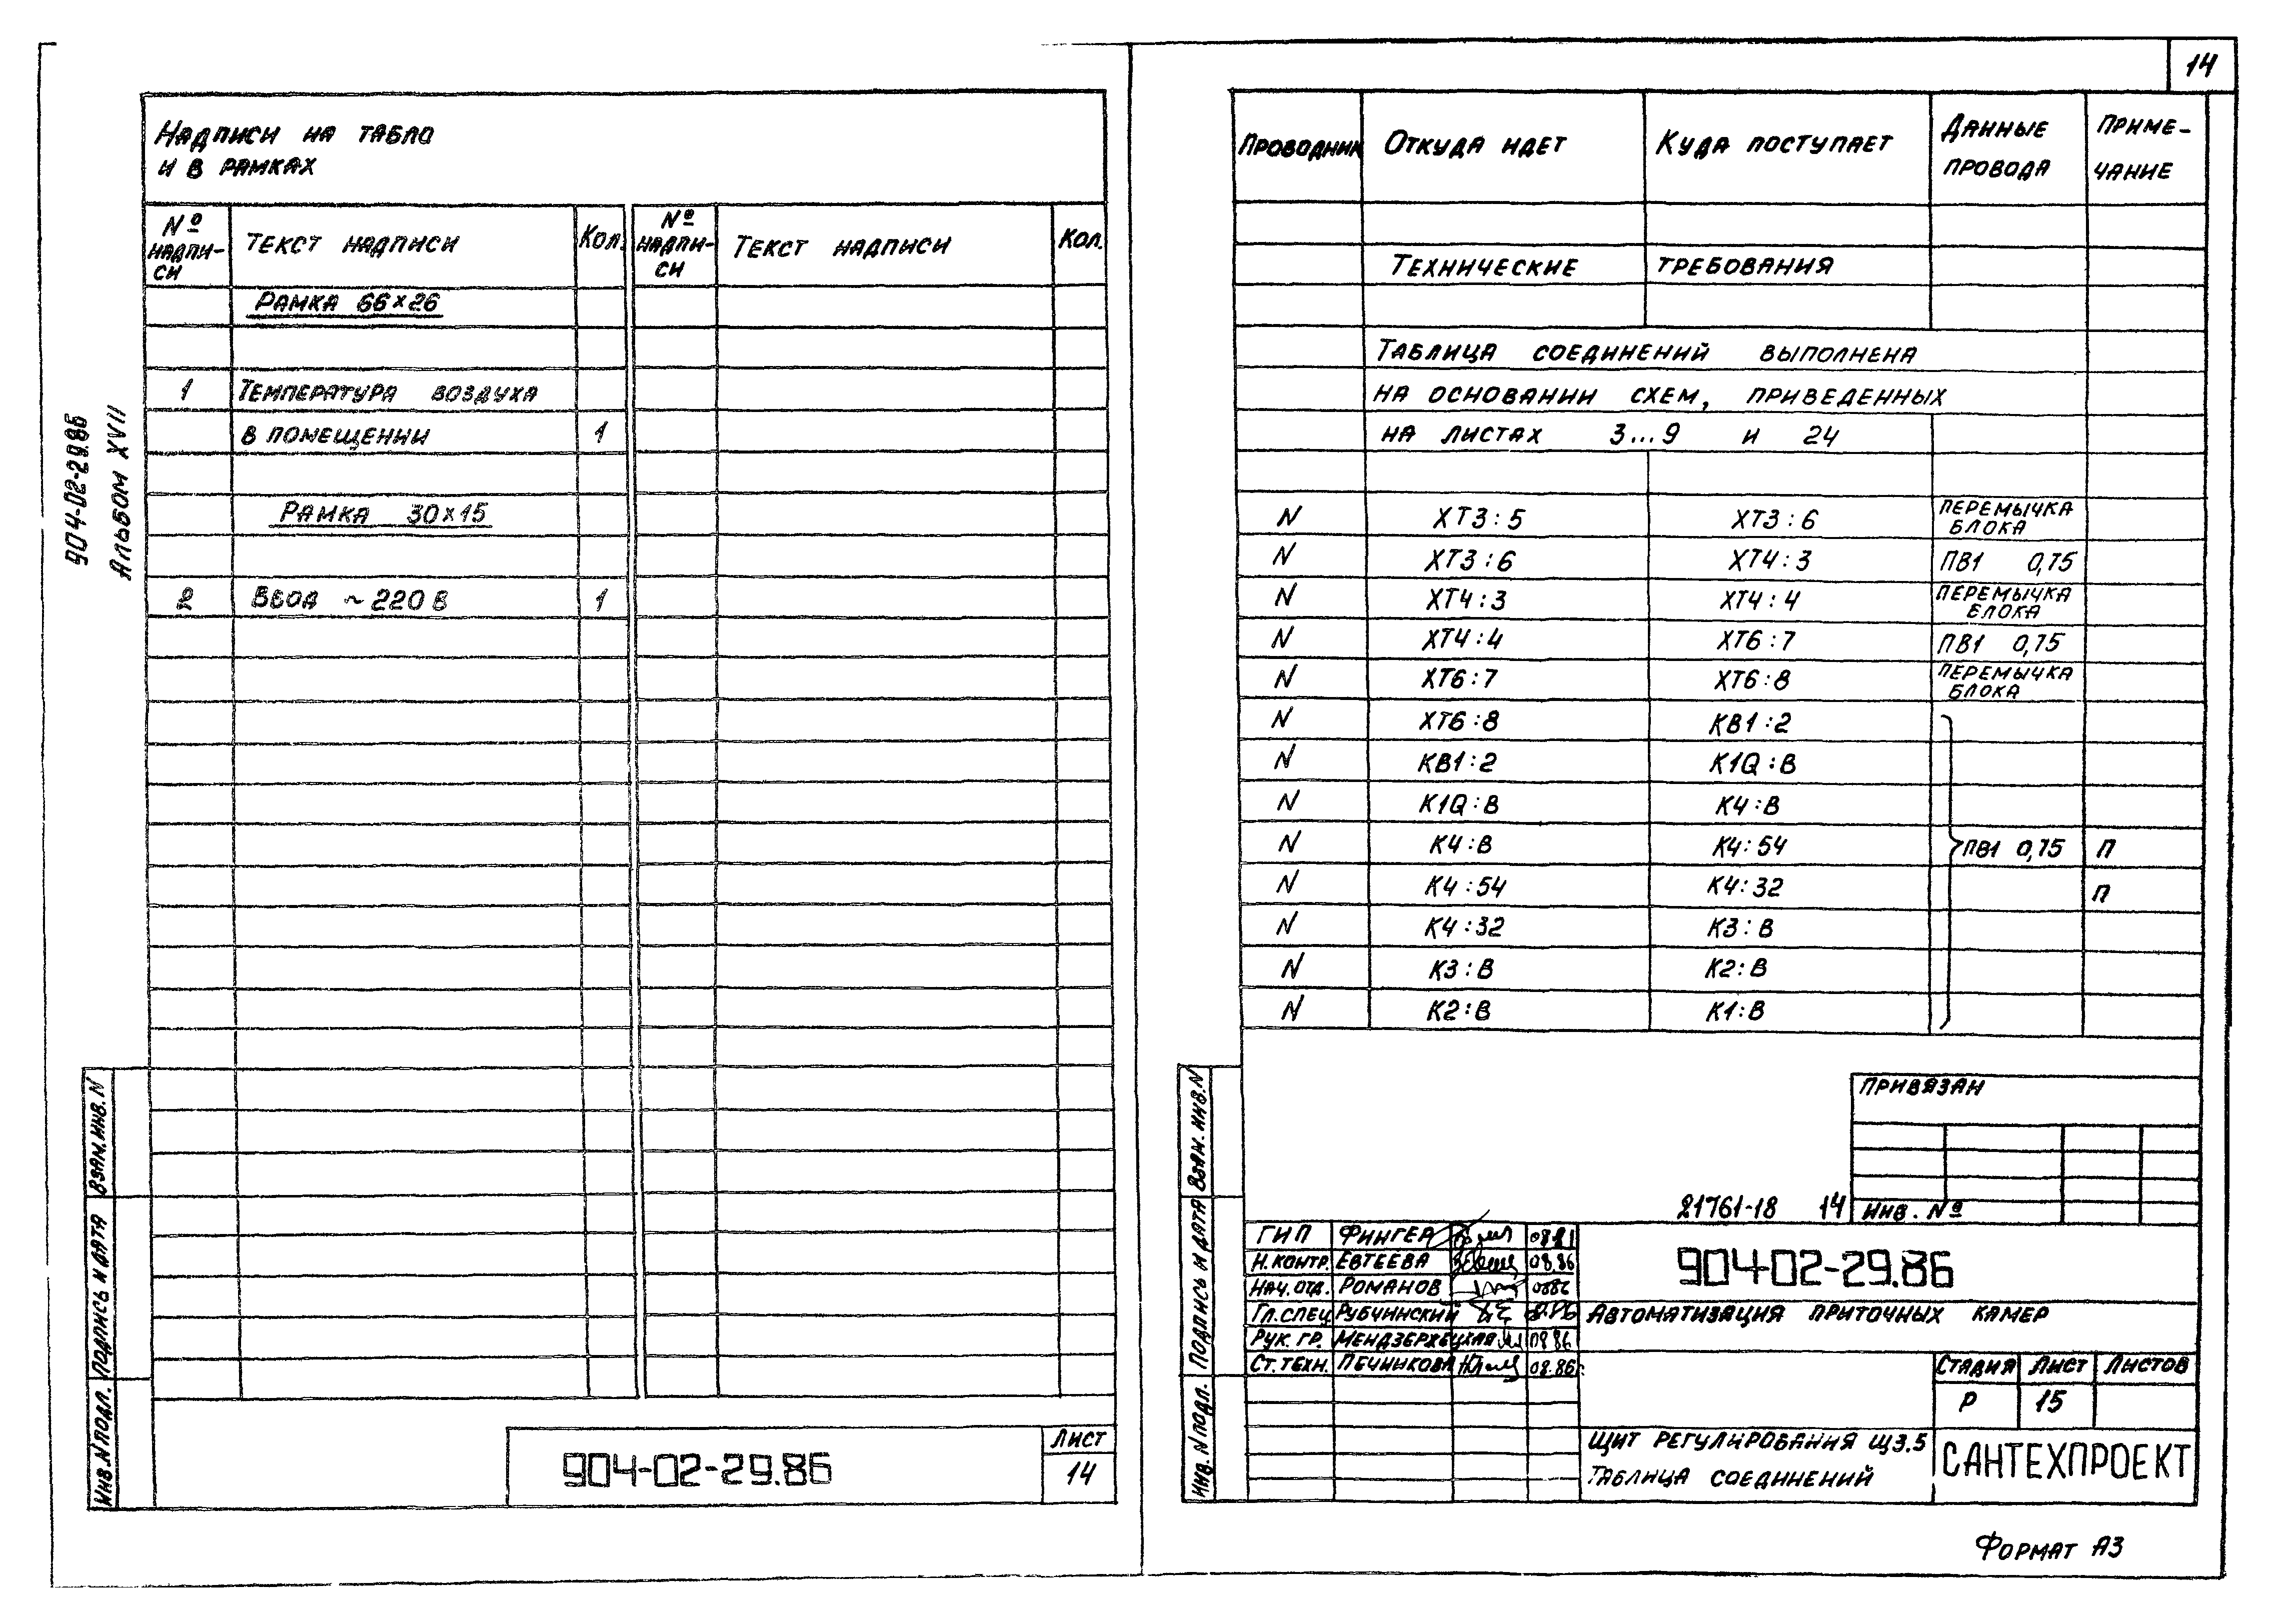 14
904-02-29.86
Альбом XVII
Надписи на табло
и в рамках
№ надпи-си Текст надписи Кол. № надпи-си Текст надписи Кол.
Рамка 66×26
1 Температура воздуха
в помещении 1
Рамка 30×15
2 Ввод ~220 В 1
Взам. инв. N
Подпись и дата
Инв. N подл.
904-02-29.86
Лист
14
Проводник Откуда идет Куда поступает Данные провода Приме-чание
Технические требования
Таблица соединений выполнена
на основании схем, приведенных
на листах 3...9 и 24
N ХТ3:5 ХТ3:6 Перемычка блока
N ХТ3:6 ХТ4:3 ПВ1 0,75
N ХТ4:3 ХТ4:4 Перемычка блока
N ХТ4:4 ХТ6:7 ПВ1 0,75
N ХТ6:7 ХТ6:8 Перемычка блока
N ХТ6:8 КВ1:2
N КВ1:2 К1Q:В
N К1Q:В К4:В
N К4:В К4:54 ПВ1 0,75 П
N К4:54 К4:32 П
N К4:32 К3:В
N К3:В К2:В
N К2:В К1:В
Взам. инв. N
Подпись и дата
Инв. N подл.
Привязан
21761-18 14 Инв. №
ГИП Фингер
Н. контр. Евтеева 08.86
Нач. отд. Романов 0886
Гл. спец Рубчинский
Рук. гр. Мендзержецкая 08 86
Ст. техн. Печникова 08.86г.
904-02-29.86
Автоматизация приточных камер
Стадия Лист Листов
Р 15
Щит регулирования Щ3.5
Таблица соединений
САНТЕХПРОЕКТ
Формат А3